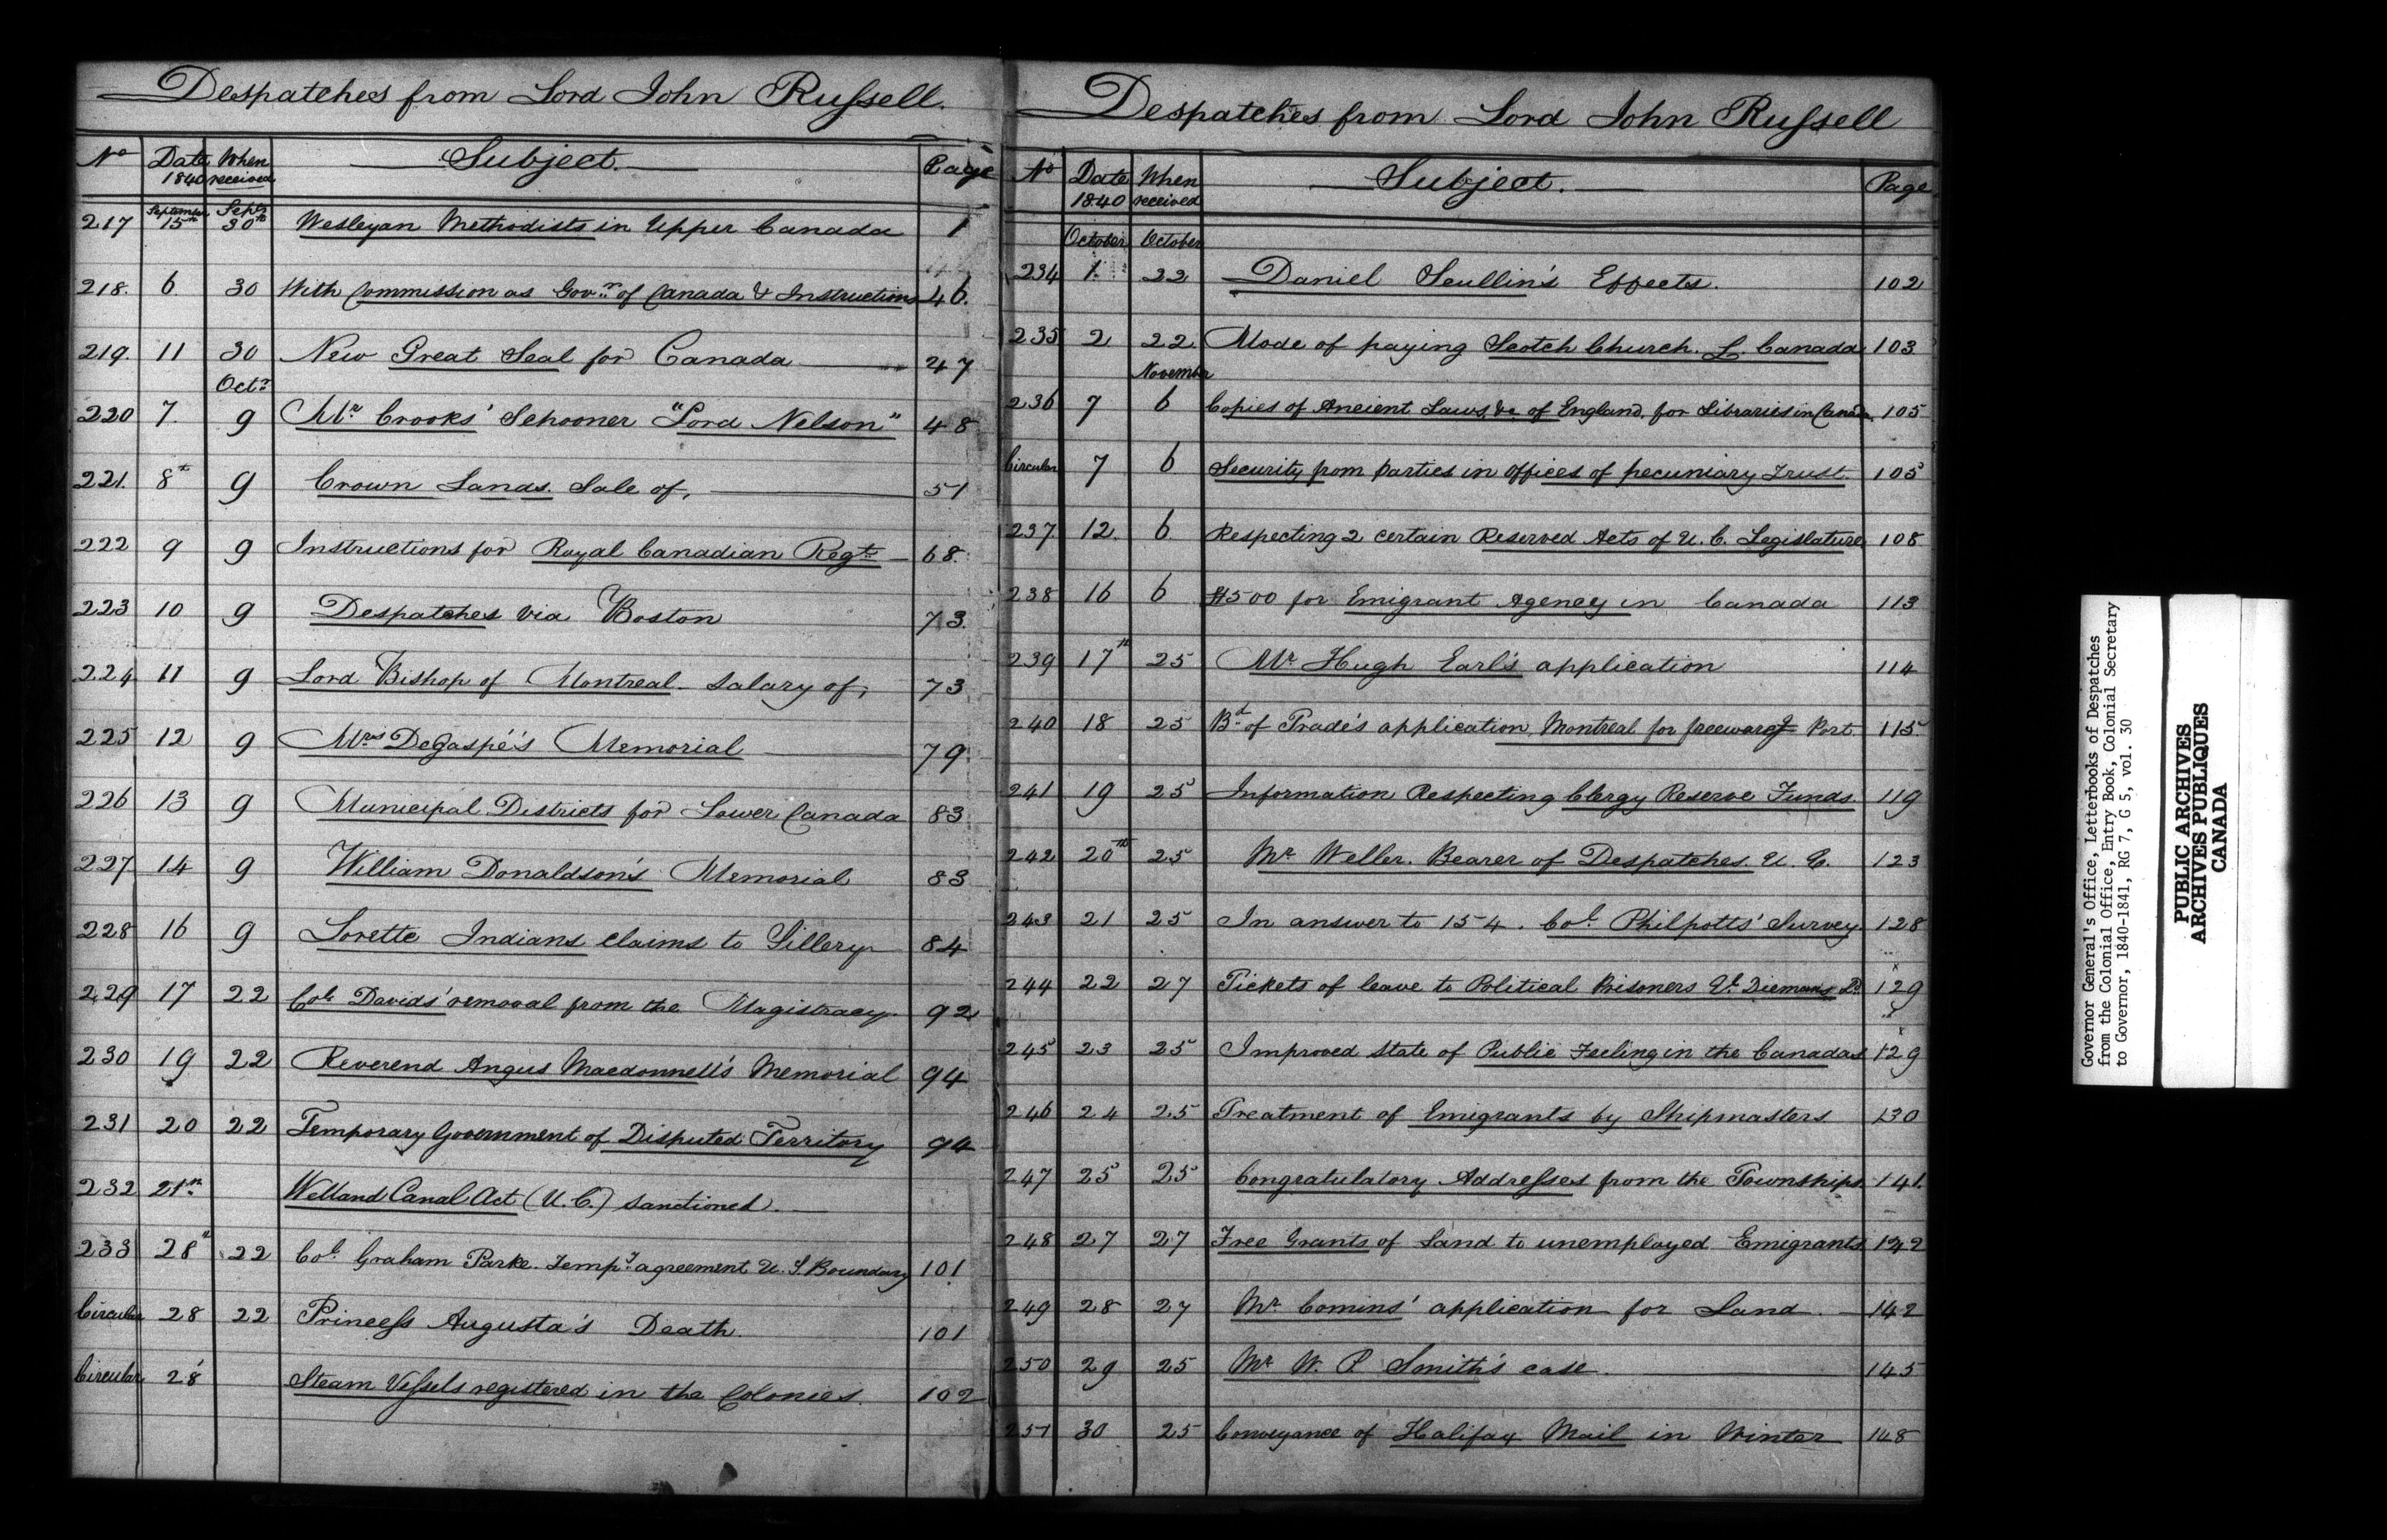 Despatches from Lord John Russell.
No Date 1840 When received Subject. Page
217 September 15th Septr 30th Wesleyan Methodists in Upper Canada 1
218. 6 30 With Commission as Govr of Canada & Instructions 46.
219. 11 30 New Great Seal for Canada 47
Octr
220 7. 9 Mr Crooks' Schooner "Lord Nelson" 48
221. 8th 9 Crown Lands. Sale of, 51
222 9 9 Instructions for Royal Canadian Regt 68.
223 10 9 Despatches via Boston 73.
224 11 9 Lord Bishop of Montreal. Salary of, 73
225 12 9 Mrs DeGaspé's Memorial 79
226 13 9 Municipal Districts for Lower Canada 83
227 14 9 William Donaldson's Memorial 83
228 16 9 Lorette Indians claims to Sillery 84
229 17 22 Col. Davids' removal from the Magistracy. 92
230 19 22 Reverend Angus Macdonnell's Memorial 94
231 20 22 Temporary Government of Disputed Territory 94
232 21st Welland Canal Act (U.C.) sanctioned.
233 28th 22 Col. Graham Parke. Tempy agreement U.S. Boundary 101
Circular 28 22 Princess Augusta's Death. 101
Circular 28 Steam Vessels registered in the Colonies. 102
Despatches from Lord John Russell
No Date 1840 When received Subject. Page
October October
234 1. 22 Daniel Scullin's Effects. 102
235 2 22 Mode of paying Scotch Church. L. Canada 103
November
236 7 6 Copies of Ancient Laws, &c of England, for Libraries in Canada 105
Circular 7 6 Security from parties in offices of pecuniary Trust. 105
237 12 6 Respecting 2 certain Reserved Acts of U.C. Legislature 108
238 16 6 £1500 for Emigrant Agency in Canada 113
239 17th 25 Mr Hugh Earl's application 114
240 18 25 Bd of Trade's application, Montreal for free Port 115.
241 19 25 Information Respecting Clergy Reserve Funds. 119
242 20th 25 Mr Weller. Bearer of Despatches. U.C. 123
243 21 25 In answer to 154. Col. Philpotts' Survey 128
244 22 27 Tickets of leave to Political Prisoners V. Diemans Ld 129
245 23 25 Improved state of Public Feeling in the Canadas 129
246 24 25 Treatment of Emigrants by Shipmasters 130
247 25 25 Congratulatory Addresses from the Townships 141.
248 27 27 Free Grants of Land to unemployed Emigrants 142
249 28 27 Mr Comins' application for Land. 142
250 29 25 Mr W. P Smith's case. 145
251 30 25 Conveyance of Halifax Mail in Winter 148
Governor General's Office, Letterbooks of Despatches
from the Colonial Office, Entry Book, Colonial Secretary
to Governor, 1840-1841, RG 7, G 5, vol. 30
PUBLIC ARCHIVES
ARCHIVES PUBLIQUES
CANADA